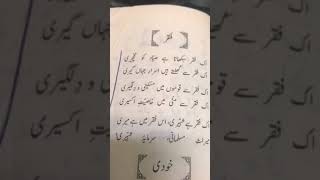 فقر
اک فقر سکھاتا ہے صیّاد کو نخچیری
اک فقر سے کھلتے ہیں اسرارِ جہاں گیری
اک فقر سے قوموں میں مسکینی و دلگیری
اک فقر سے مٹی میں خاصیّتِ اکسیری
اک فقر ہے شبیری، اس فقر میں ہے میری
میراثِ مسلمانی، سرمایۂ شبیری
خودی